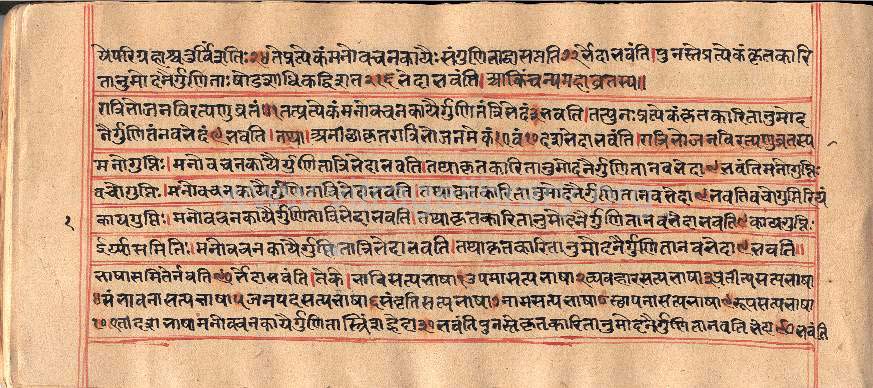 येपरिग्रहाश्चतुर्विंशतिः २४ तेप्रत्येकंमनोवचनकायैः संगुणिताद्वासप्ततिः ७२ र्भेदाभवंति । पुनस्तेप्रत्येकंकृतकारि
तानुमोदनैर्गुणिताः षोडशाधिकद्विशत २१६ भेदाभवंति । आकिंचन्यमहाव्रतस्य ॥
रात्रिभोजनविरत्यणुव्रतं १ तत्प्रत्येकंमनोवचनकायैर्गुणितंत्रिभेदं ३ भवति । तत्पुनः प्रत्येकंकृतकारितानुमोद
नैर्गुणितंनवभेदं ९ भवति । तथा । रात्रिभोजनविरत्यणुव्रतस्य
मनोगुप्तिः । मनोवचनकायैर्गुणितात्रिभेदाभवति । तथाकृतकारितानुमोदनैर्गुणितानवभेदा ९ भवंतिमनोगुप्तिः
वचोगुप्तिः । मनोवचनकायैर्गुणितात्रिभेदाभवति । तथाकृतकारितानुमोदनैर्गुणितानवभेदा ९ भवतिवचोगुप्तिरियं
१ कायगुप्तिः । मनोवचनकायैर्गुणितात्रिभेदाभवति । तथाकृतकारितानुमोदनैर्गुणितानवभेदाभवति ९ कायगुप्तिः
ईर्यासमितिः । मनोवचनकायैर्गुणितात्रिभेदाभवति । तथाकृतकारितानुमोदनैर्गुणितानवभेदा ९ भवति ॥
भाषासमितेर्नवति ९० र्भेदाभवंति । तेके । सत्यभाषा १ उपमासत्यभाषा २ व्यवहारसत्यभाषा ३ प्रतीत्यसत्यभाषा
४ संभावनासत्यभाषा ५ जनपदसत्यभाषा ६ संवृतिसत्यभाषा ७ नामसत्यभाषा ८ स्थापनासत्यभाषा ९ रूपसत्यभाषा
१० एतादशभाषामनोवचनकायैर्गुणितास्त्रिंशद्भेदा ३० भवंतिपुनस्तेकृतकारितानुमोदनैर्गुणितानवति ९० भवंति